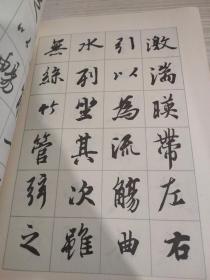 激湍暎帶左右
引以為流觴曲
水列坐其次雖
無絲竹管弦之
暢